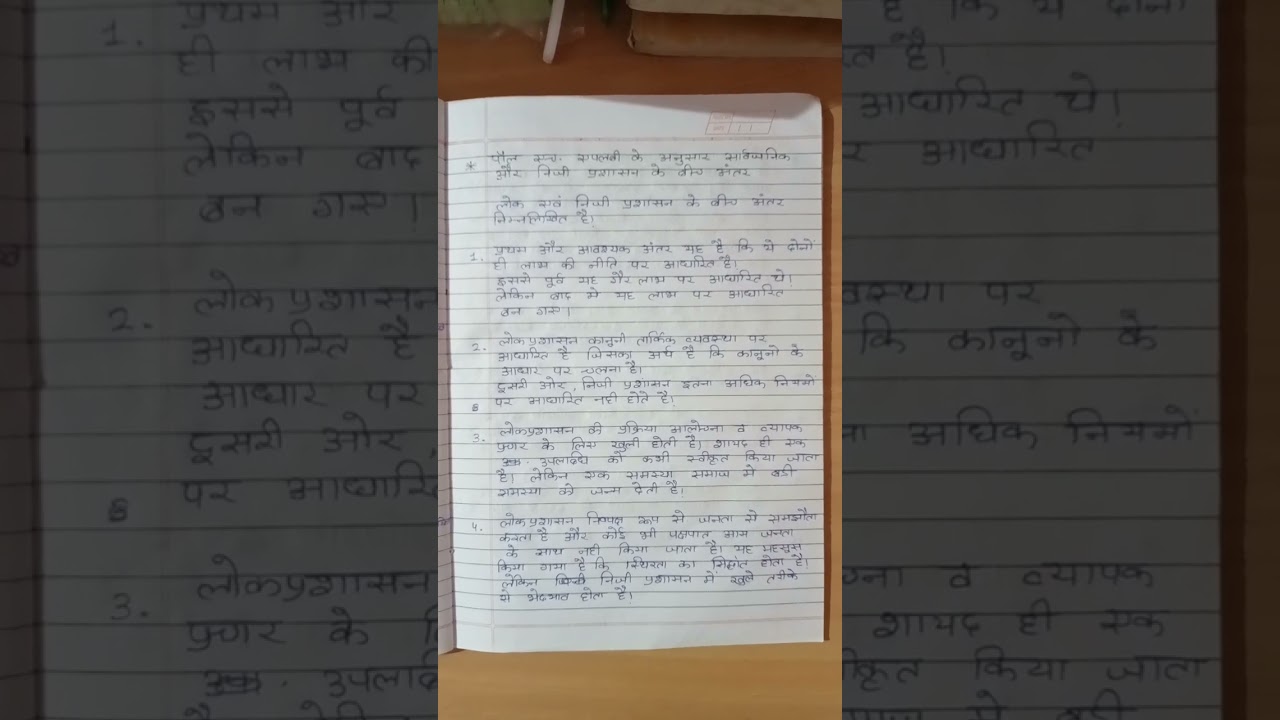 * पौल एच. एपलबी के अनुसार सार्वजनिक
और निजी प्रशासन के बीच अंतर
लोक एवं निजी प्रशासन के बीच अंतर
निम्नलिखित है।
1. प्रथम और आवश्यक अंतर यह है कि ये दोनों
ही लाभ की नीति पर आधारित है।
इससे पूर्व यह गैर लाभ पर आधारित थे।
लेकिन बाद में यह लाभ पर आधारित
बन गए।
2. लोकप्रशासन कानुनी तार्किक व्यवस्था पर
आधारित है जिसका अर्थ है कि कानूनो के
आधार पर चलना है।
दूसरी ओर, निजी प्रशासन इतना अधिक नियमों
पर आधारित नही होते है।
3. लोकप्रशासन की प्रक्रिया आलोचना व व्यापक
प्रचार के लिए खुली होती है। शायद ही एक
उपलब्धि को कभी स्वीकृत किया जाता
है। लेकिन एक समस्या समाज मे बडी
समस्या को जन्म देती है।
4. लोकप्रशासन निष्पक्ष रूप से जनता से समझौता
करता है और कोई भी पक्षपात आम जनता
के साथ नही किया जाता है। यह महसूस
किया गया है कि स्थिरता का सिद्धांत होता है।
लेकिन निजी प्रशासन में खुले तरीके
से भेदभाव होता है।